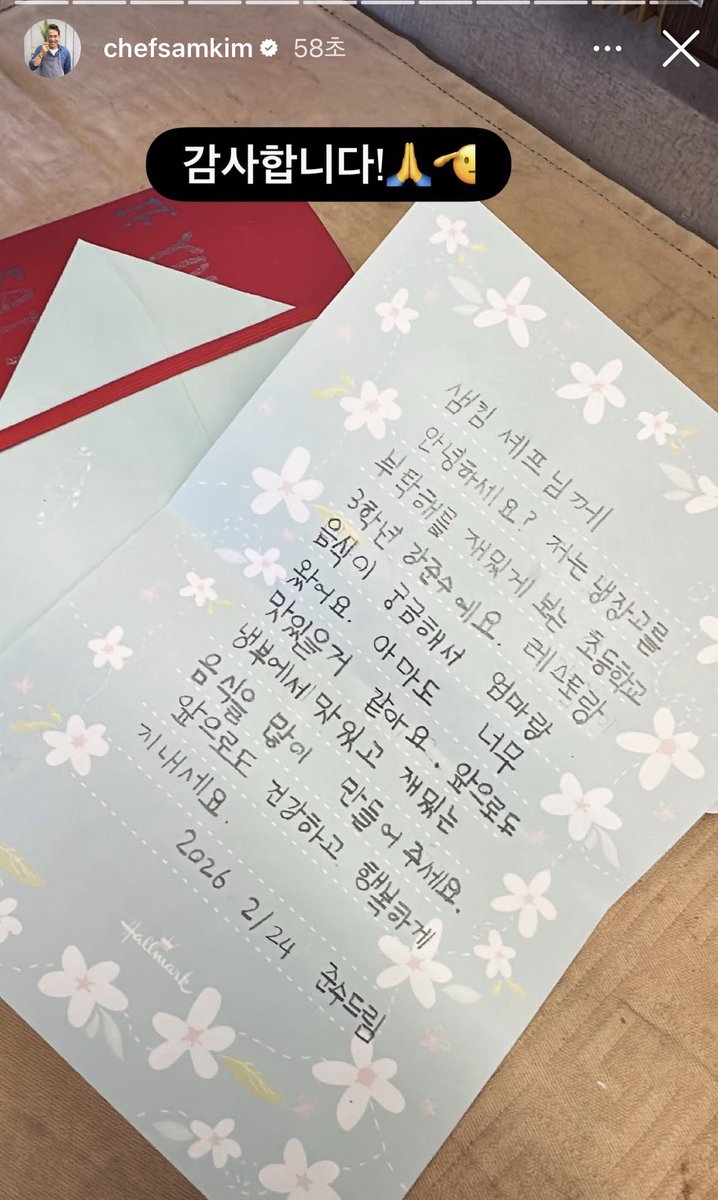 chefsamkim 58초
감사합니다!🙏🫡
샘킴 셰프님께
안녕하세요? 저는 냉장고를
부탁해를 재밌게 보는 초등학교
3학년 강준수예요. 레스토랑
음식이 궁금해서 엄마랑
왔어요. 아마도 너무
맛있을거 같아요. 앞으로도
냉부에서 맛있고 재밌는
음식을 많이 만들어 주세요.
앞으로도 건강하고 행복하게
지내세요.
2026 2/24 준수드림
Hallmark